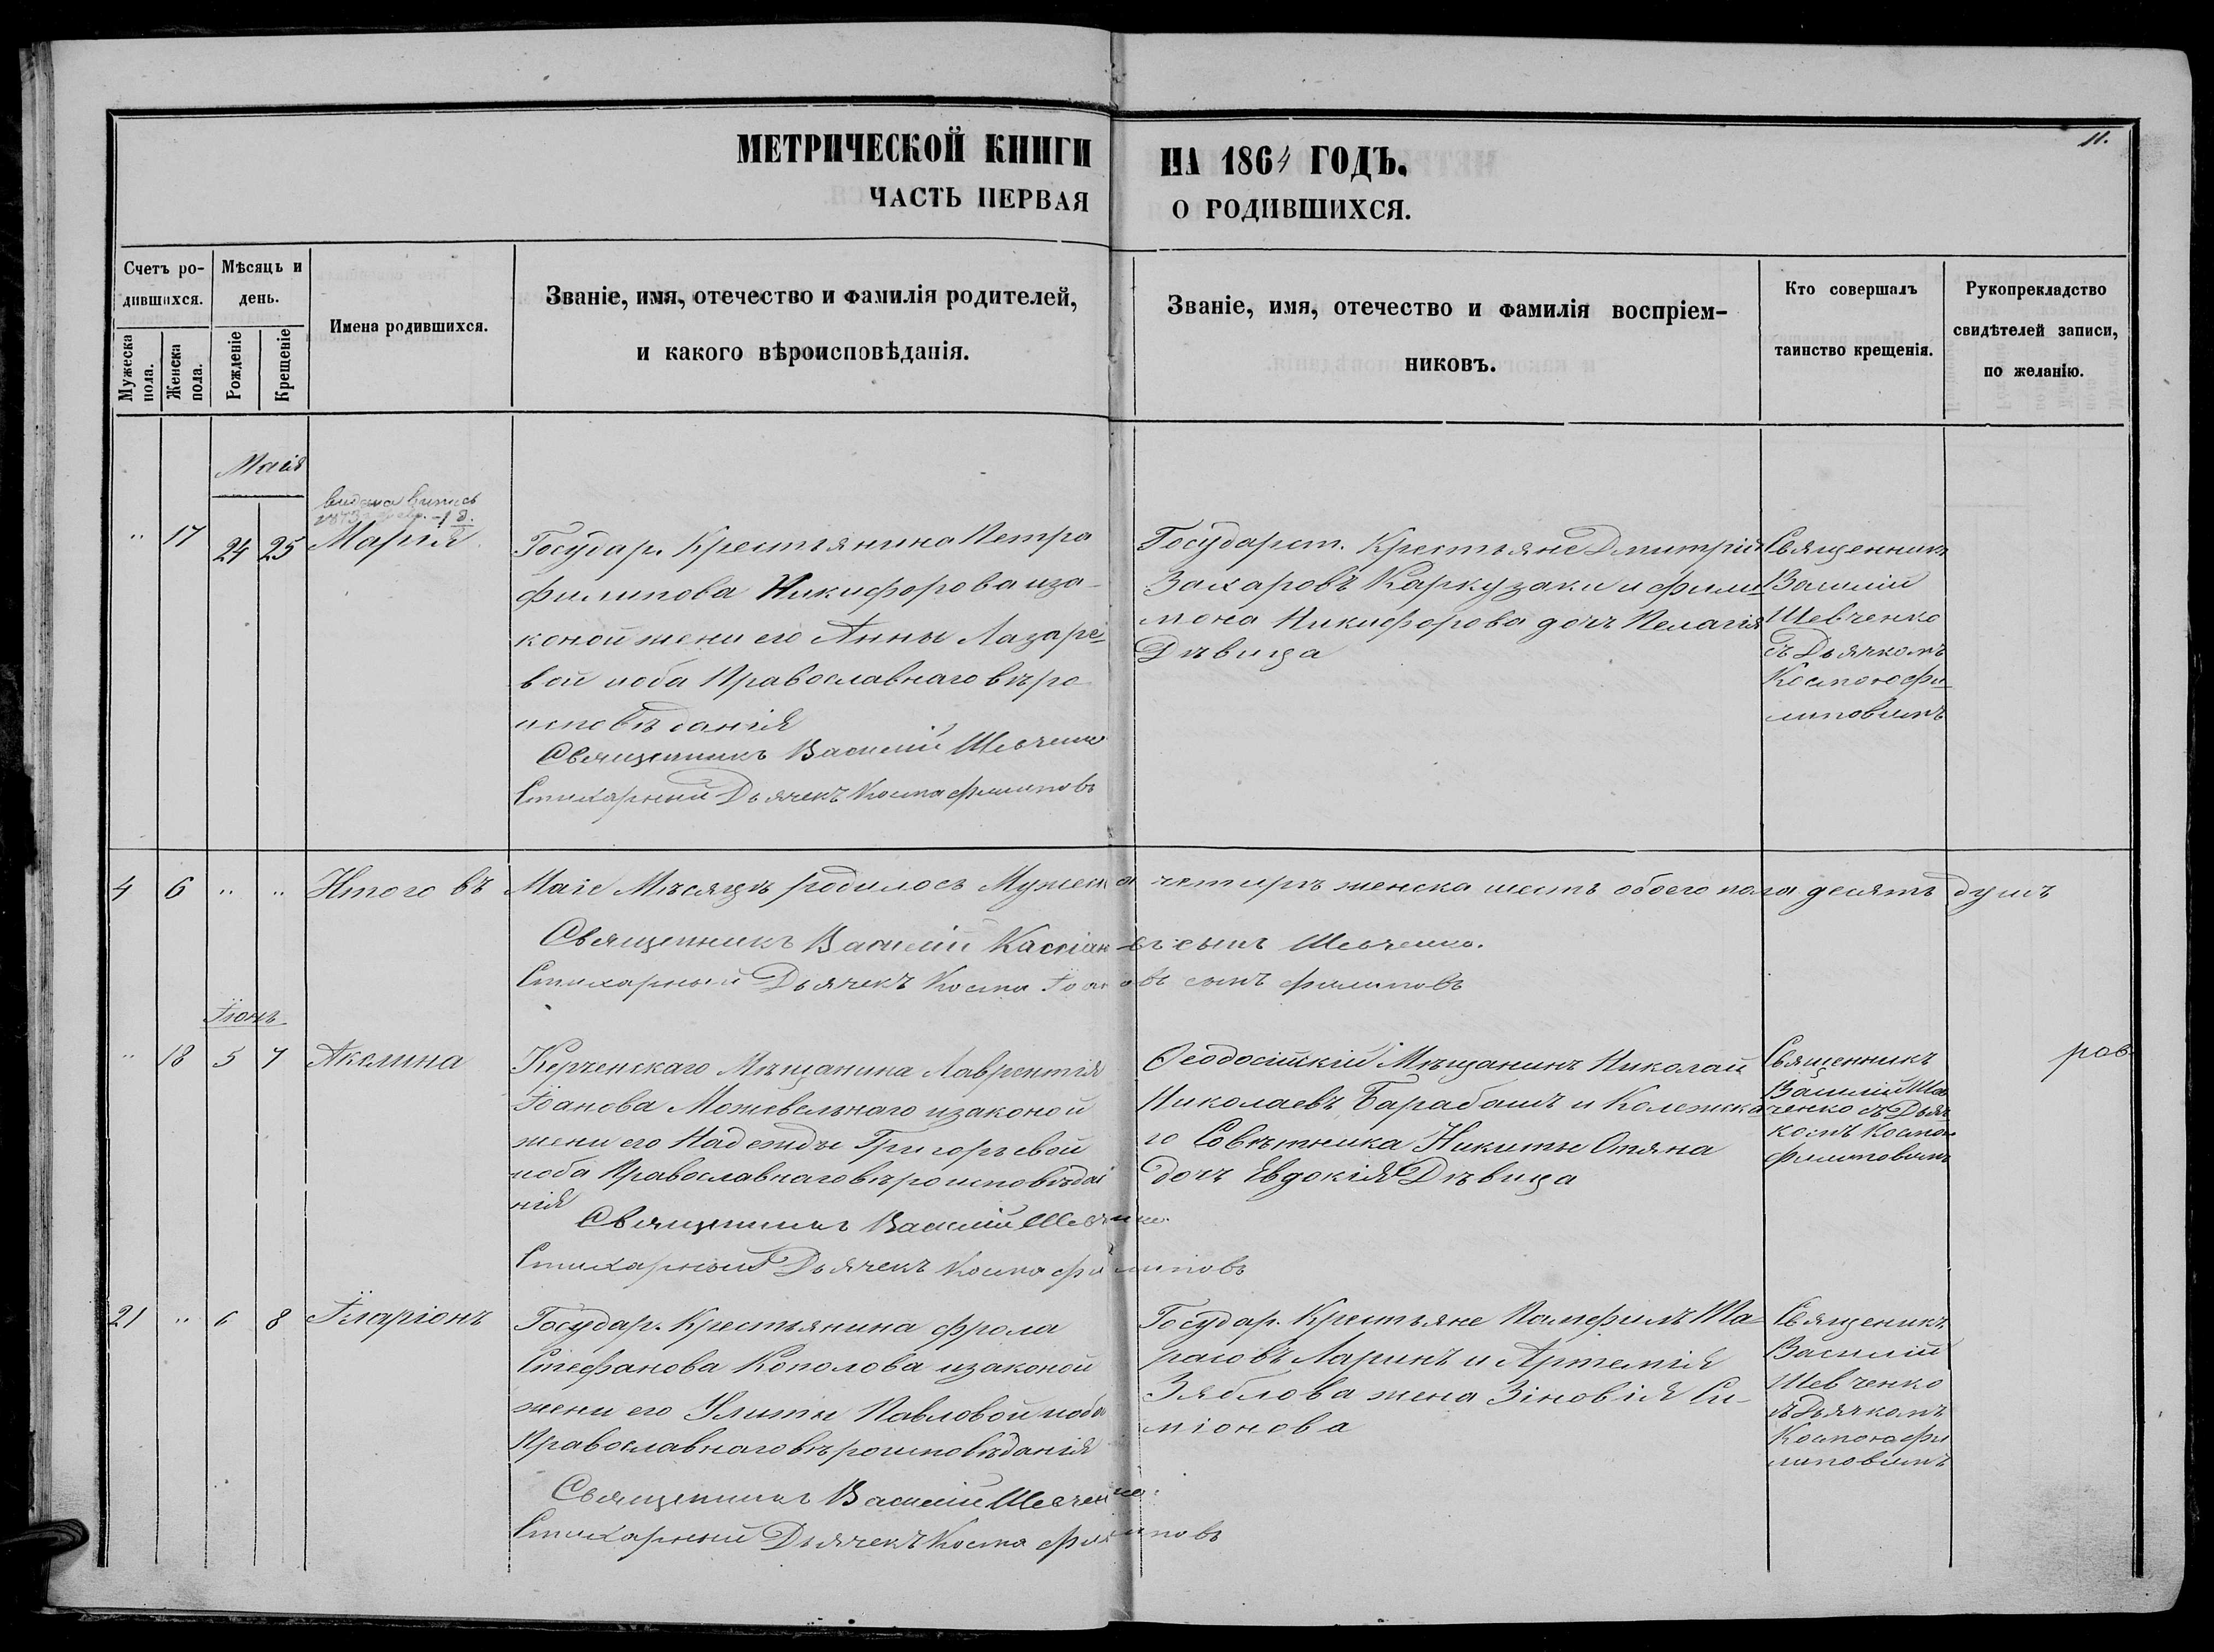 11.
МЕТРИЧЕСКОЙ КНИГИ НА 1864 ГОДЪ.
ЧАСТЬ ПЕРВАЯ О РОДИВШИХСЯ.
Счетъ ро-
дившихся.
Мужеска
пола.
Женска
пола.
Мѣсяцъ и
день.
Рожденіе
Крещеніе
Имена родившихся.
Званіе, имя, отечество и фамилія родителей,
и какого вѣроисповѣданія.
Званіе, имя, отечество и фамилія воспріем-
никовъ.
Кто совершалъ
таинство крещенія.
Рукоприкладство
свидѣтелей записи,
по желанію.
Маія
" 17 24 25
Марія
Государ. Крестьянина Петра
Филипова Никифорова иза-
коной жени его Анны Лазаре-
вой иоба Православнаго вѣро
исповѣданія
Священникъ Василій Шевченко
Стихарный Дьячекъ Косма Филиповъ
Государст. Крестьяне Дмитрій
Захаровъ Каркузаки и Фили-
мона Никифорова дочъ Пелагія
Дѣвица
Священникъ
Василій
Шевченко
съ Дьячкомъ
Космою Фи-
липовимъ
4 6 " " Итого въ Маіе Мѣсяцѣ родилось Мужеска четиръ женска шесть обоего пола десять душъ
Священникъ Василій Кассіановъ сынъ Шевченко.
Стихарный Дьячекъ Косма Іоановъ сынъ Филиповъ
Іюнь
" 18 5 7
Акелина
Керченскаго Мѣщанина Лаврентія
Іоанова Можевельнаго изаконой
жени его Надежды Григорьевой
иоба Православнаго вѣроисповѣда
нія
Священникъ Василій Шевченко.
Стихарный Дьячекъ Косма Филиповъ
Ѳеодосійскій Мѣщанинъ Николай
Николаевъ Барабашъ и Колежска
го Совѣтника Никиты Отяна
дочъ Евдокія Дѣвица
Священникъ
Василій Шев
ченко съ Дьяч
комъ Космою
Филиповимъ
ров
21 " 6 8
Іларіонъ
Государ. Крестьянина Фрола
Стефанова Кополова изаконой
жени его Улиты Павловой иоба
Православнаго вѣроисповѣданія
Священникъ Василій Шевченко.
Стихарный Дьячекъ Косма Филиповъ
Государ. Крестьяне Памфилъ Та-
расовъ Ларинъ и Артемія
Зяблова жена Зіновія Си-
міонова
Священикъ
Василій
Шевченко
съ Дьячкомъ
Космою Фи
липовимъ